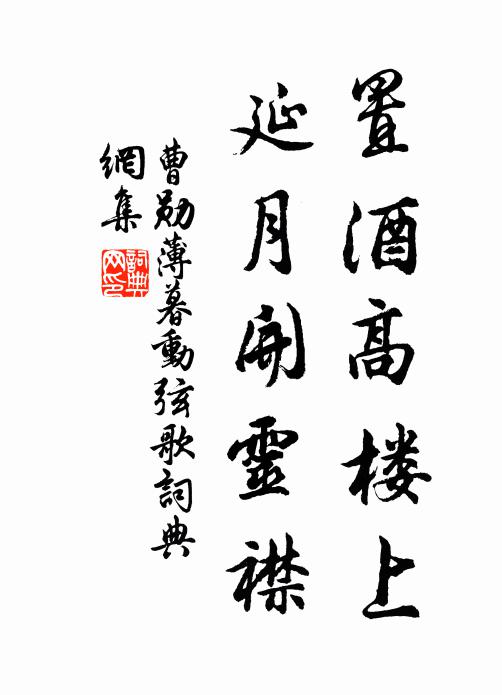 置酒高楼上
延月開靈襟
曹勛薄暮動弦歌詞典
網集
詞典
网印